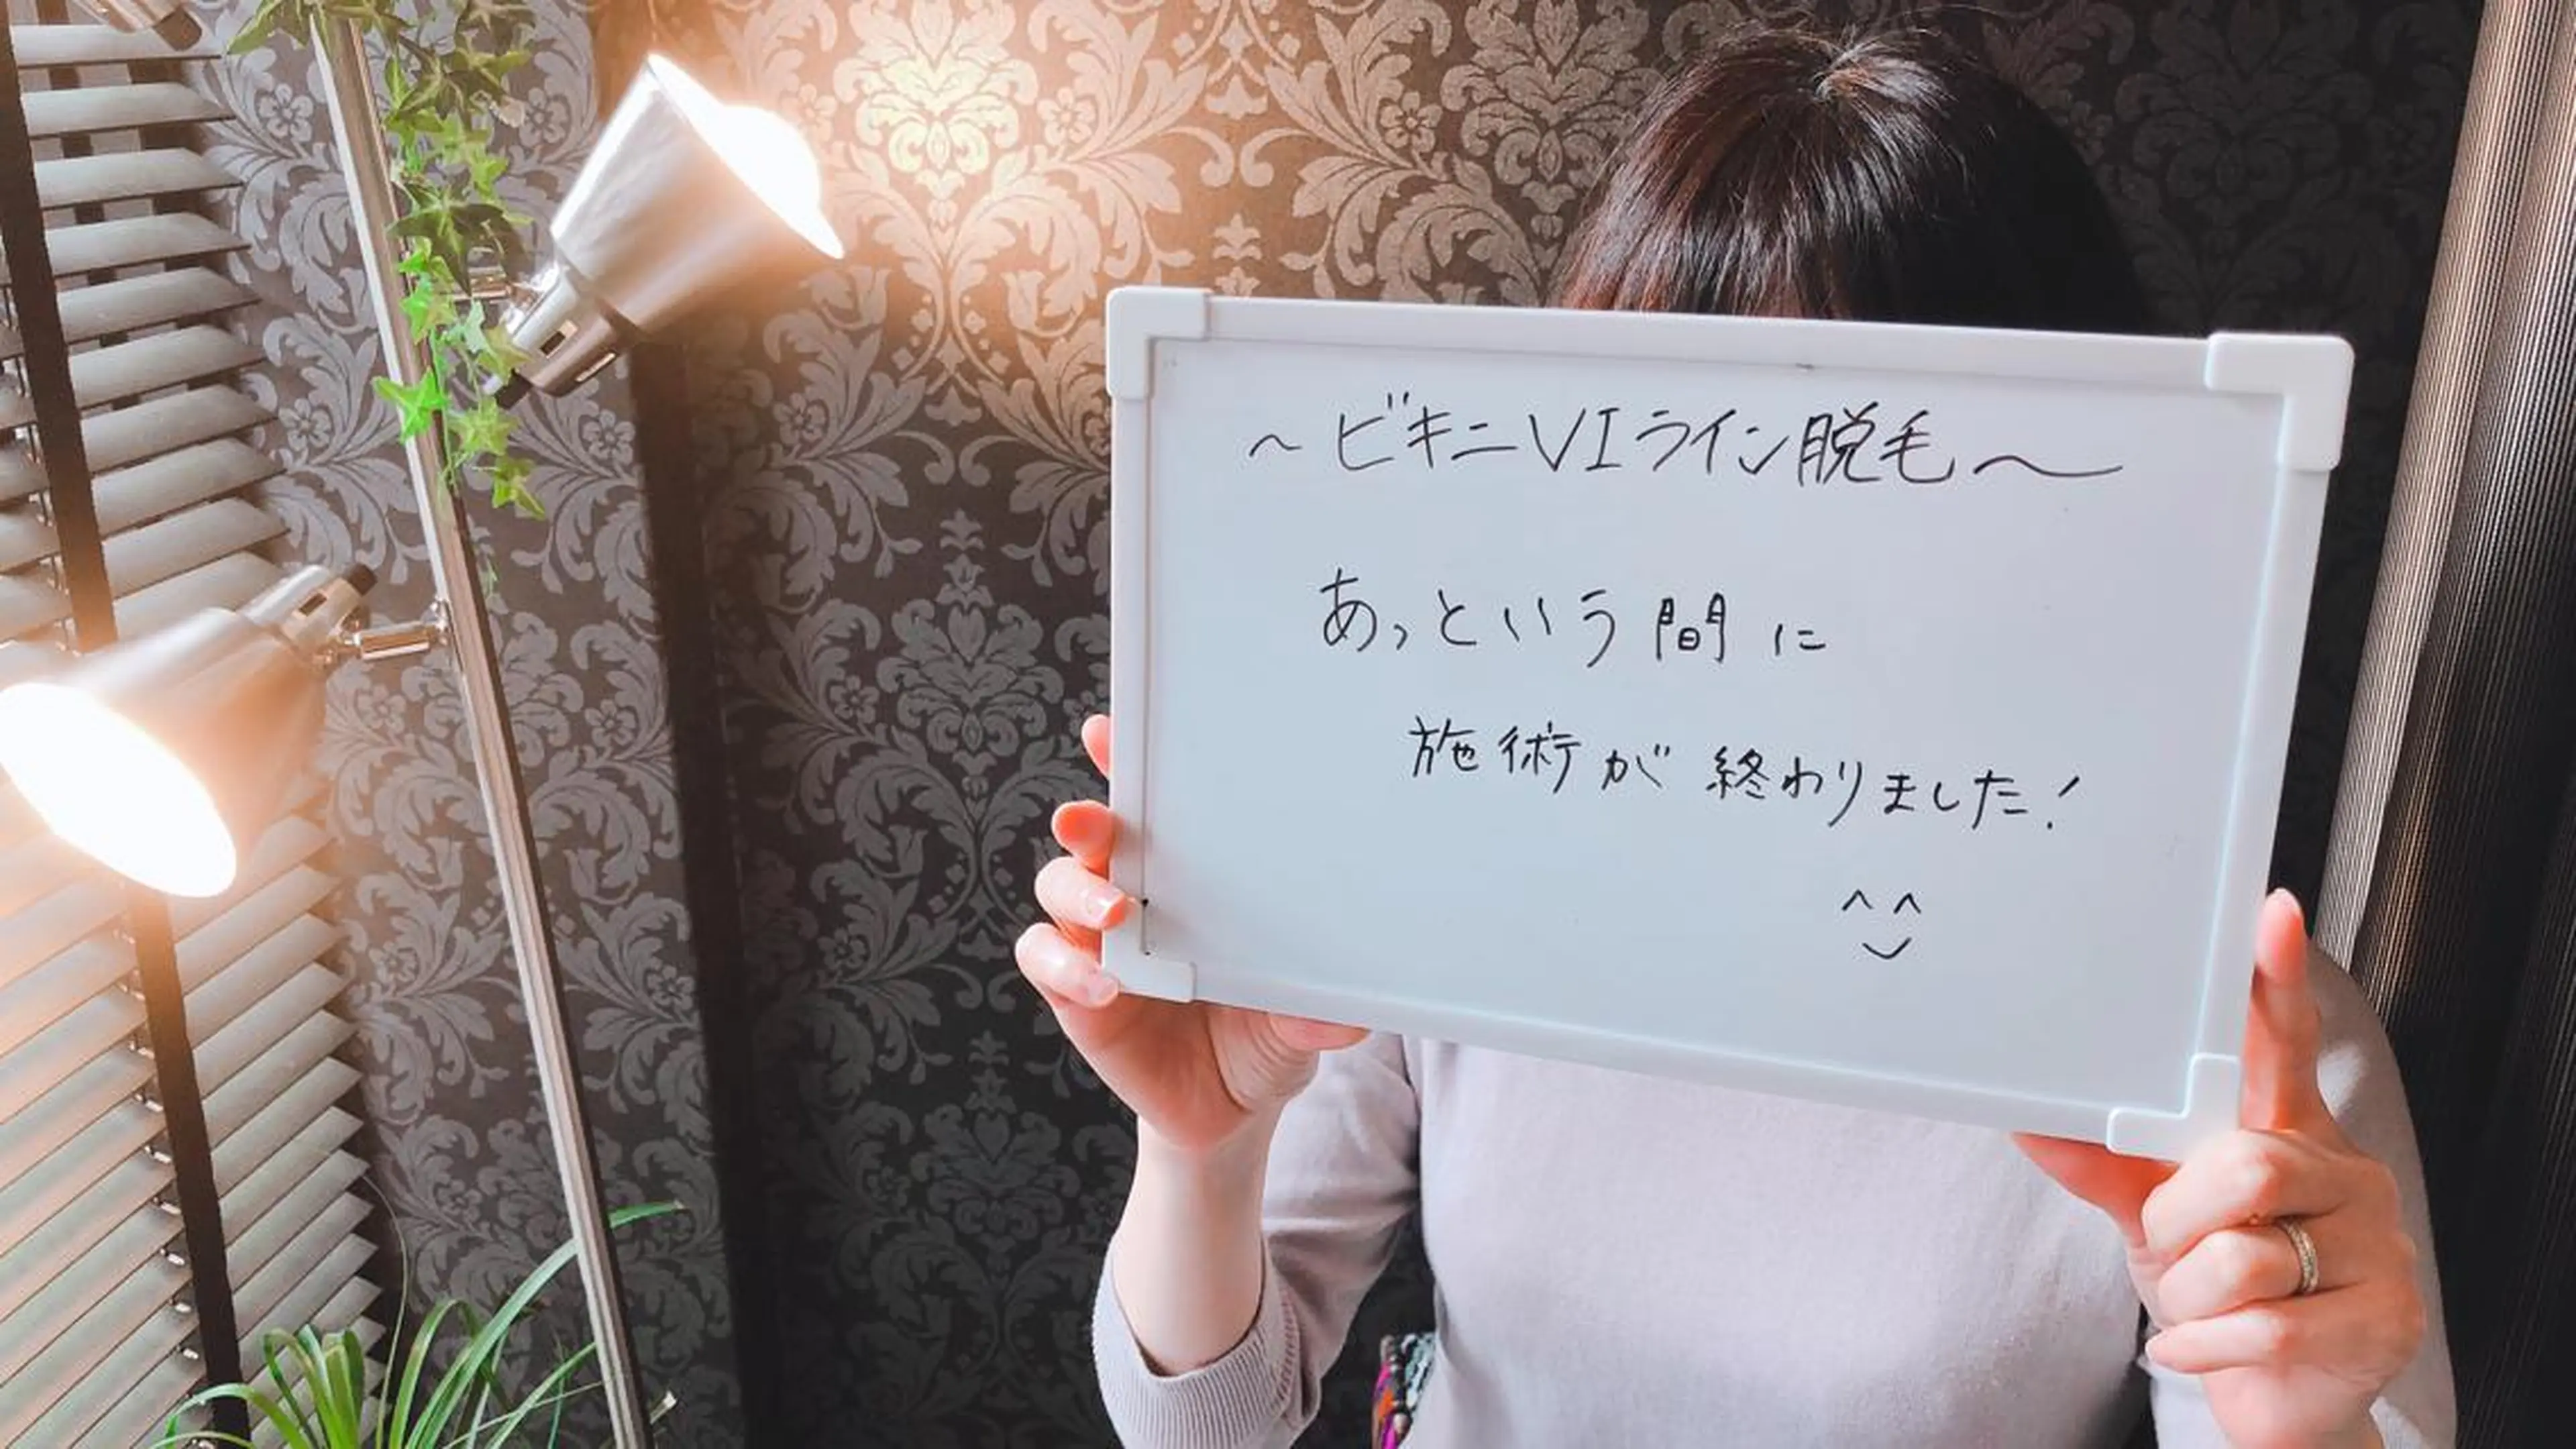 ～ビキニVIライン脱毛～
あっという間に
施術が終わりました!